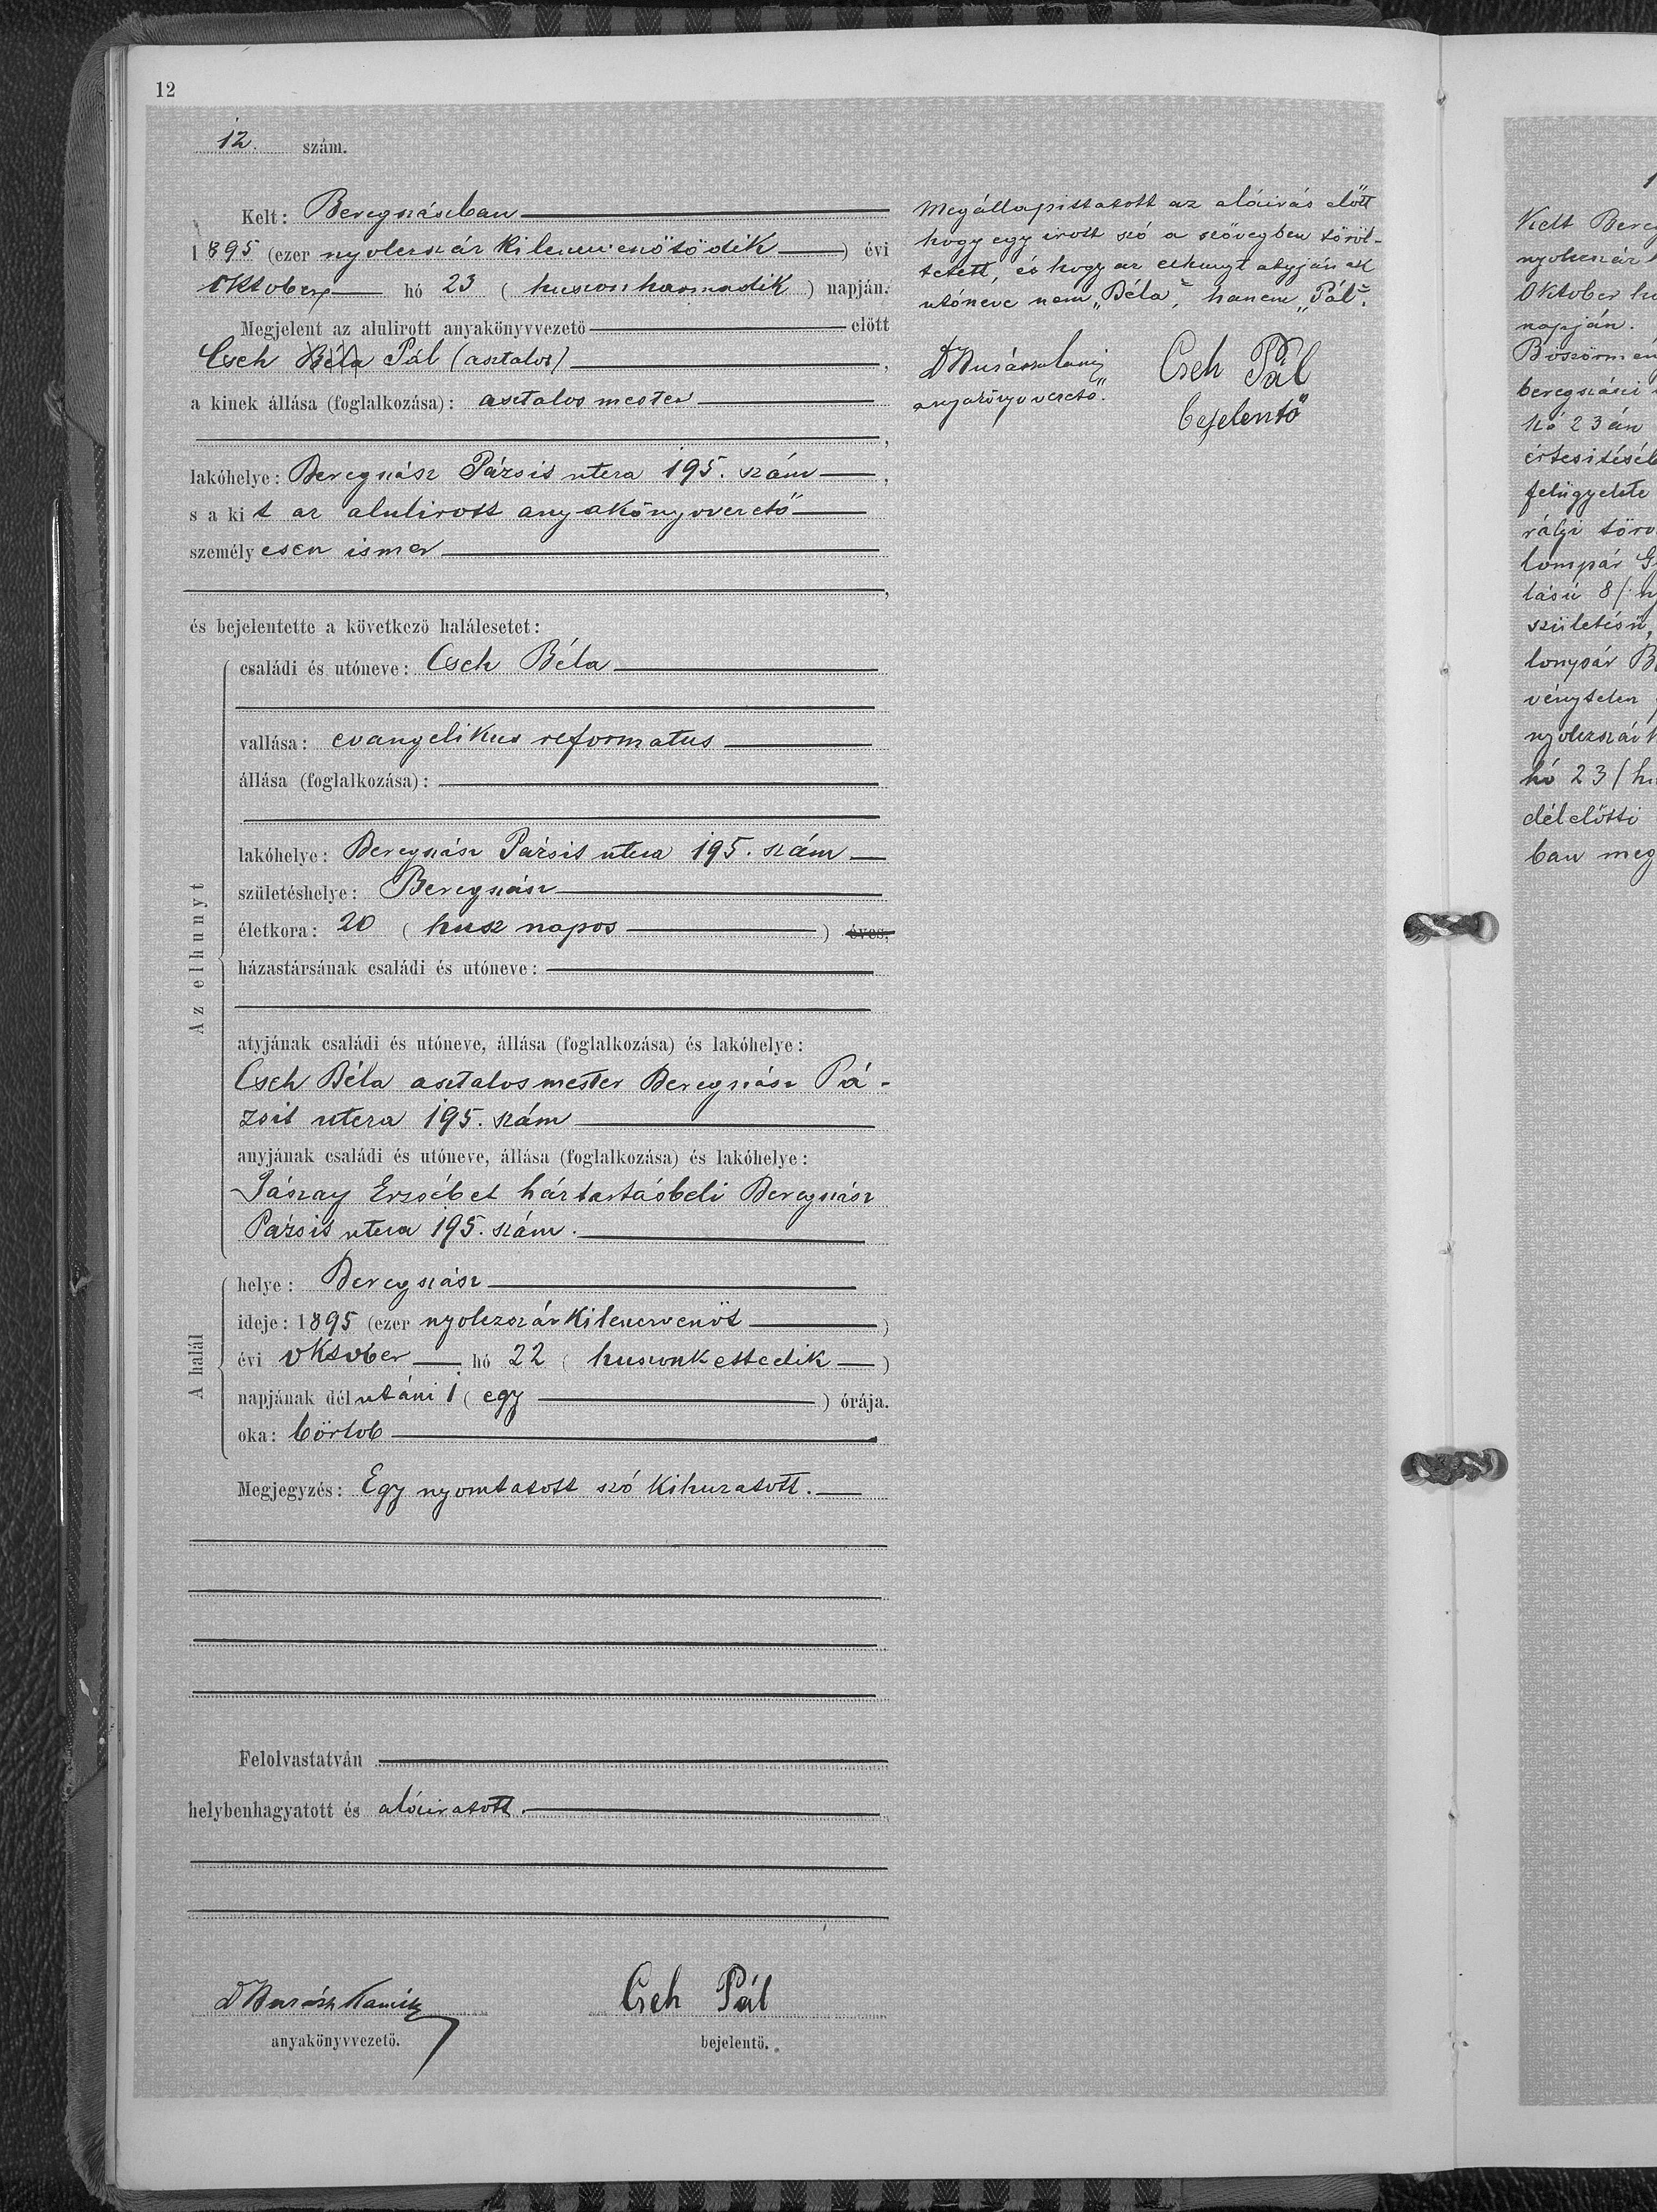 12
12. szám.
Kelt: Beregszászban
1895 (ezer nyolczszáz kilenczvenötödik) évi
október hó 23 (huszonharmadik) napján.
Megjelent az alulirott anyakönyvvezető előtt
Cseh Béla Pál (asztalos),
a kinek állása (foglalkozása): asztalos mester
,
lakóhelye: Beregszász Pázsit utcza 195. szám,
s a kit az alulirott anyakönyvvezető
személyesen ismer
,
és bejelentette a következő halálesetet:
Az elhunyt
családi és utóneve: Cseh Béla
vallása: evangelikus reformatus
állása (foglalkozása):
lakóhelye: Beregszász Pázsit utcza 195. szám
születéshelye: Beregszász
életkora: 20 (husz napos) éves,
házastársának családi és utóneve:
atyjának családi és utóneve, állása (foglalkozása) és lakóhelye:
Cseh Béla asztalosmester Beregszász Pá-
zsit utcza 195. szám
anyjának családi és utóneve, állása (foglalkozása) és lakóhelye:
Jászay Erzsébet háztartásbeli Beregszász
Pázsit utcza 195. szám.
A halál
helye: Beregszász
ideje: 1895 (ezer nyolczszáz kilenczvenöt)
évi október hó 22 (huszonkettedik)
napjának délutáni 1 (egy) órája.
oka: börlob
Megjegyzés: Egy nyomtatott szó kihuzatott.
Felolvastatván
helybenhagyatott és aláiratott.
anyakönyvvezető.
Cseh Pál
bejelentő.
Megállapittatott az aláirás előtt
hogy egy irott szó a szövegben töröl-
tetett, és hogy az elhunyt atyjának
utóneve nem „Béla", hanem „Pál".
anyakönyvvezető.
Cseh Pál
bejelentő
Kelt Bereg
nyolczszáz
Október hu
napján.
Böszörmén
beregszászi
hó 23án
értesitéséb
felügyelete
rályi törv
lompár G
lású 8/ ny
születésű,
lompár B
vénytelen
nyolczszáz k
hó 23 (hu
délelőtti
ban meg